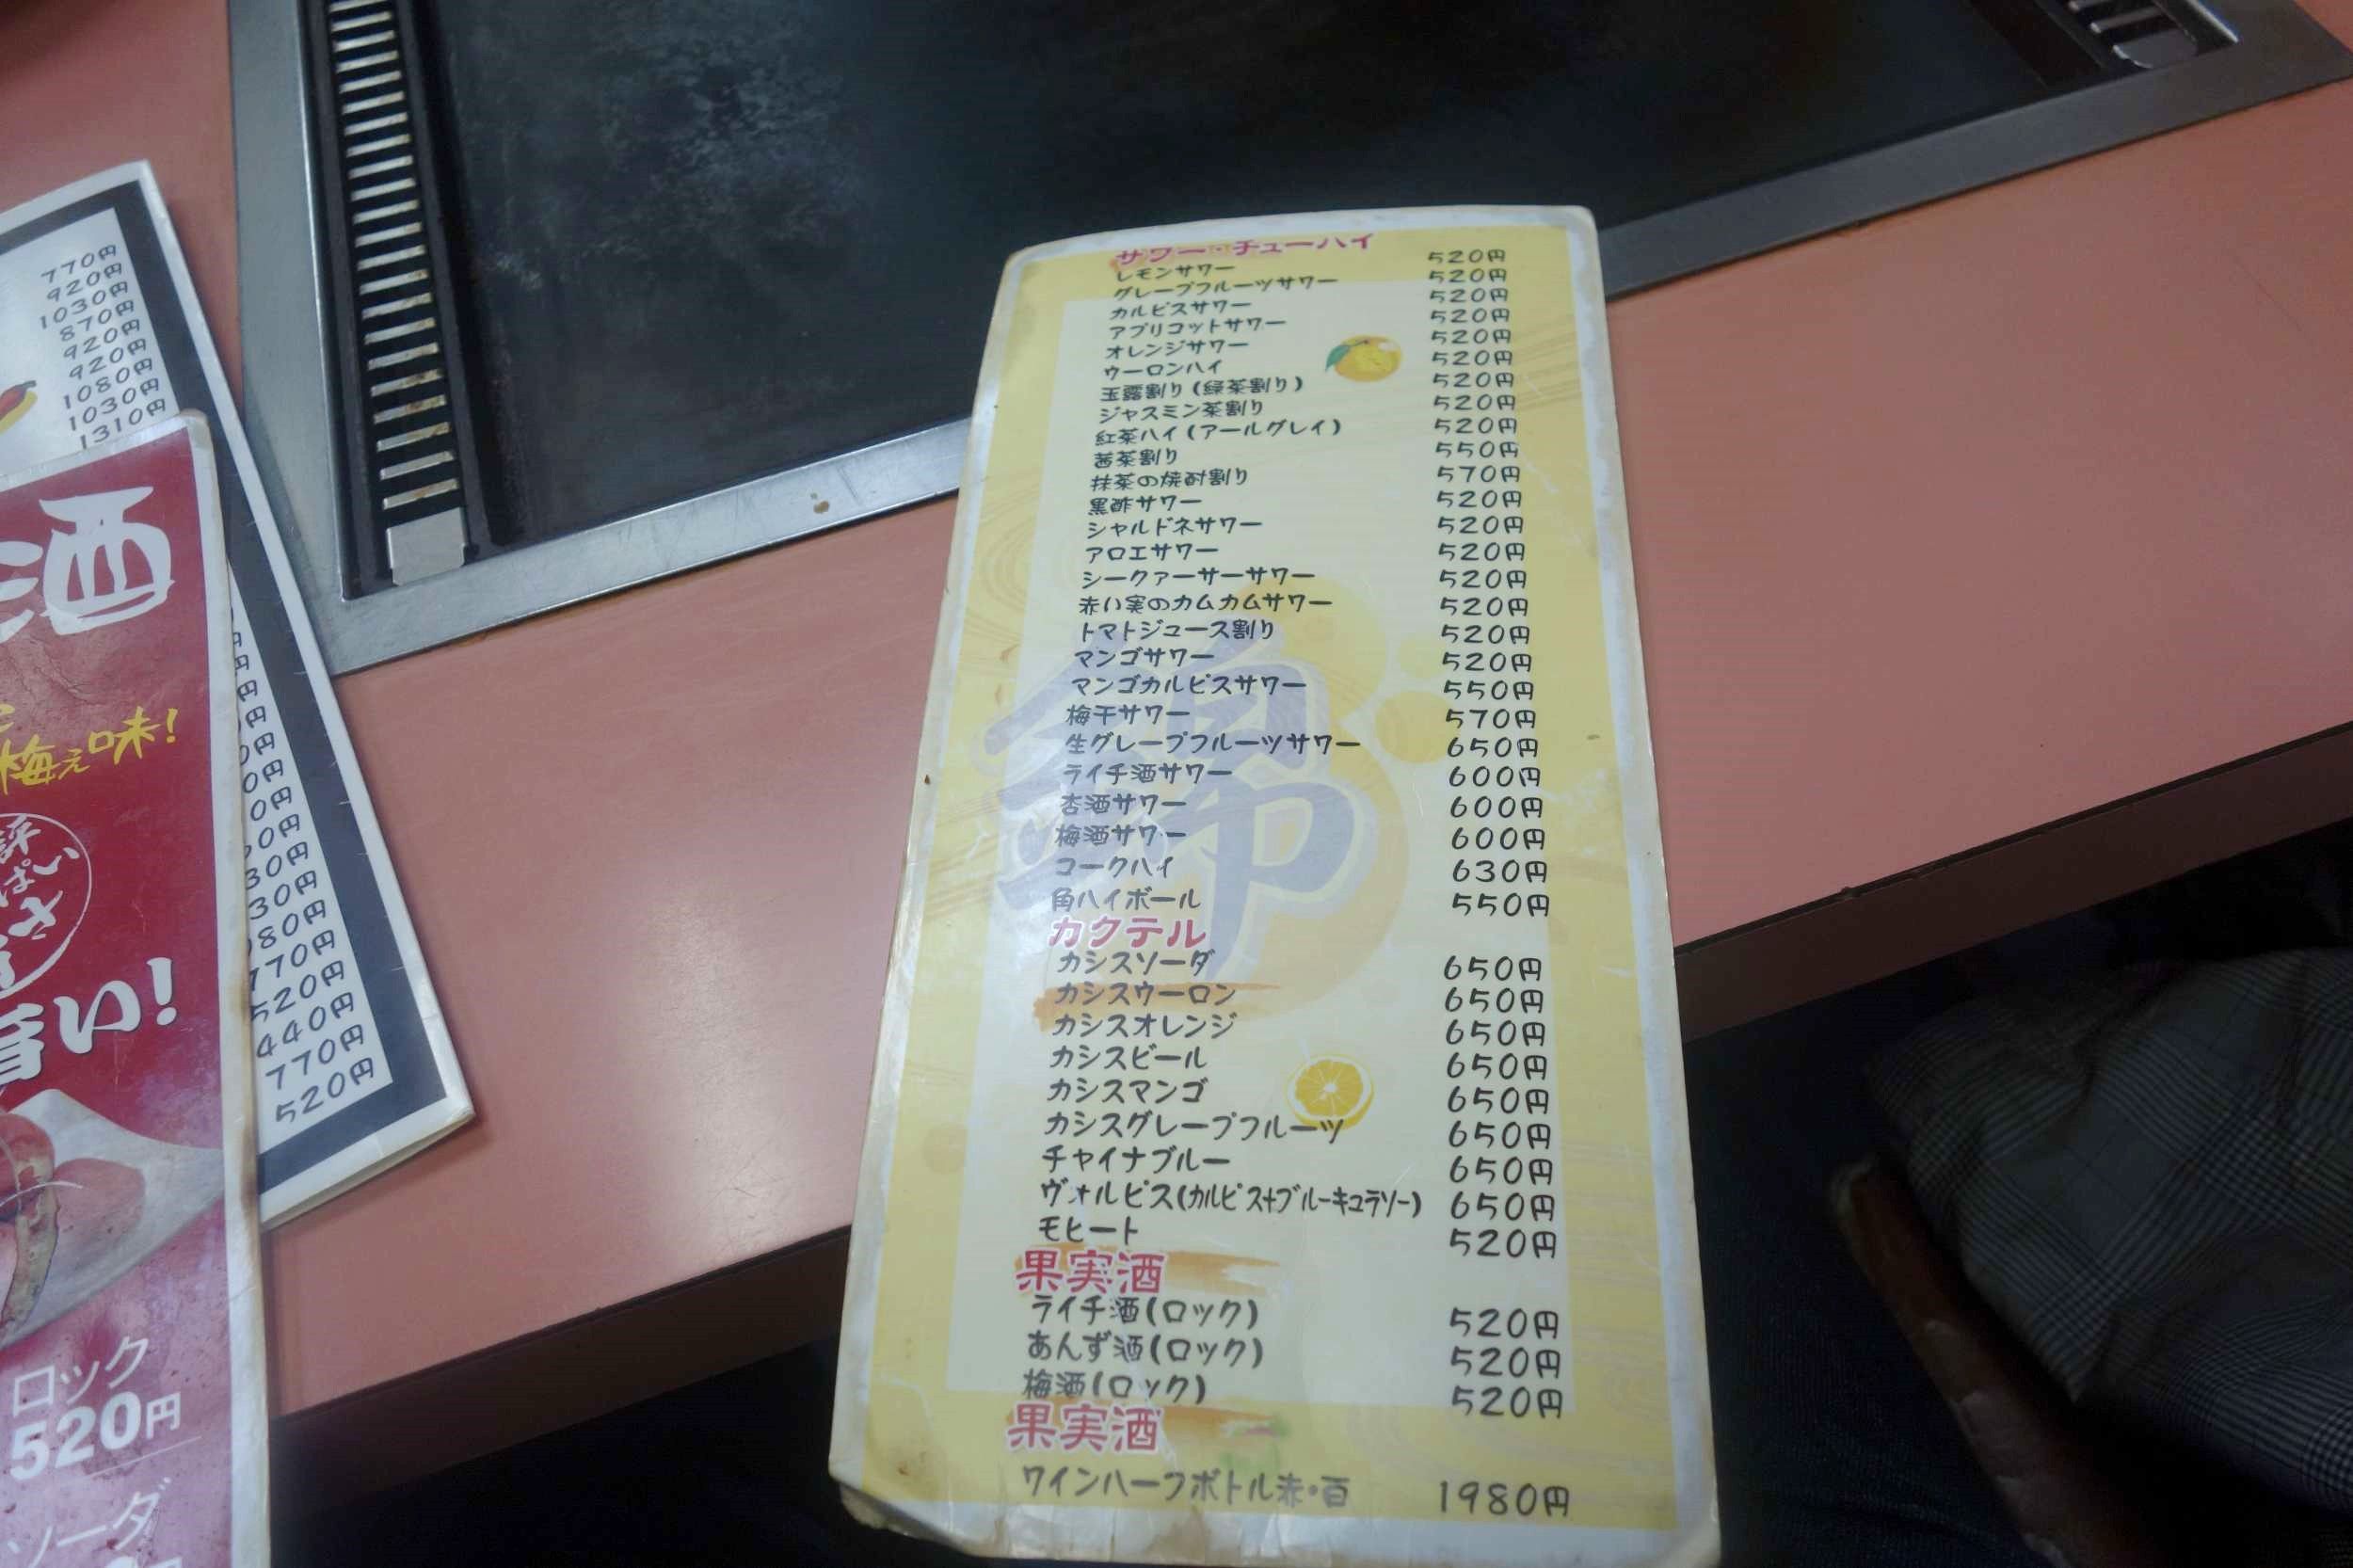 サワー・チューハイ
レモンサワー 520円
グレープフルーツサワー 520円
カルピスサワー 520円
アプリコットサワー 520円
オレンジサワー 520円
ウーロンハイ 520円
玉露割り(緑茶割り) 520円
ジャスミン茶割り 520円
紅茶ハイ(アールグレイ) 520円
茜茶割り 550円
抹茶の焼酎割り 570円
黒酢サワー 520円
シャルドネサワー 520円
アロエサワー 520円
シークァーサーサワー 520円
赤い実のカムカムサワー 520円
トマトジュース割り 520円
マンゴサワー 520円
マンゴカルピスサワー 550円
梅干サワー 570円
生グレープフルーツサワー 650円
ライチ酒サワー 600円
杏酒サワー 600円
梅酒サワー 600円
コークハイ 630円
角ハイボール 550円
カクテル
カシスソーダ 650円
カシスウーロン 650円
カシスオレンジ 650円
カシスビール 650円
カシスマンゴ 650円
カシスグレープフルーツ 650円
チャイナブルー 650円
ヴォルピス(カルピス+ブルーキュラソー) 650円
モヒート 520円
果実酒
ライチ酒(ロック) 520円
あんず酒(ロック) 520円
梅酒(ロック) 520円
果実酒
ワインハーフボトル赤・白 1980円
770円
920円
1030円
870円
920円
920円
1080円
1030円
1310円
770円
520円
440円
770円
520円
酒
味!
旨い!
ロック
520円
ソーダ